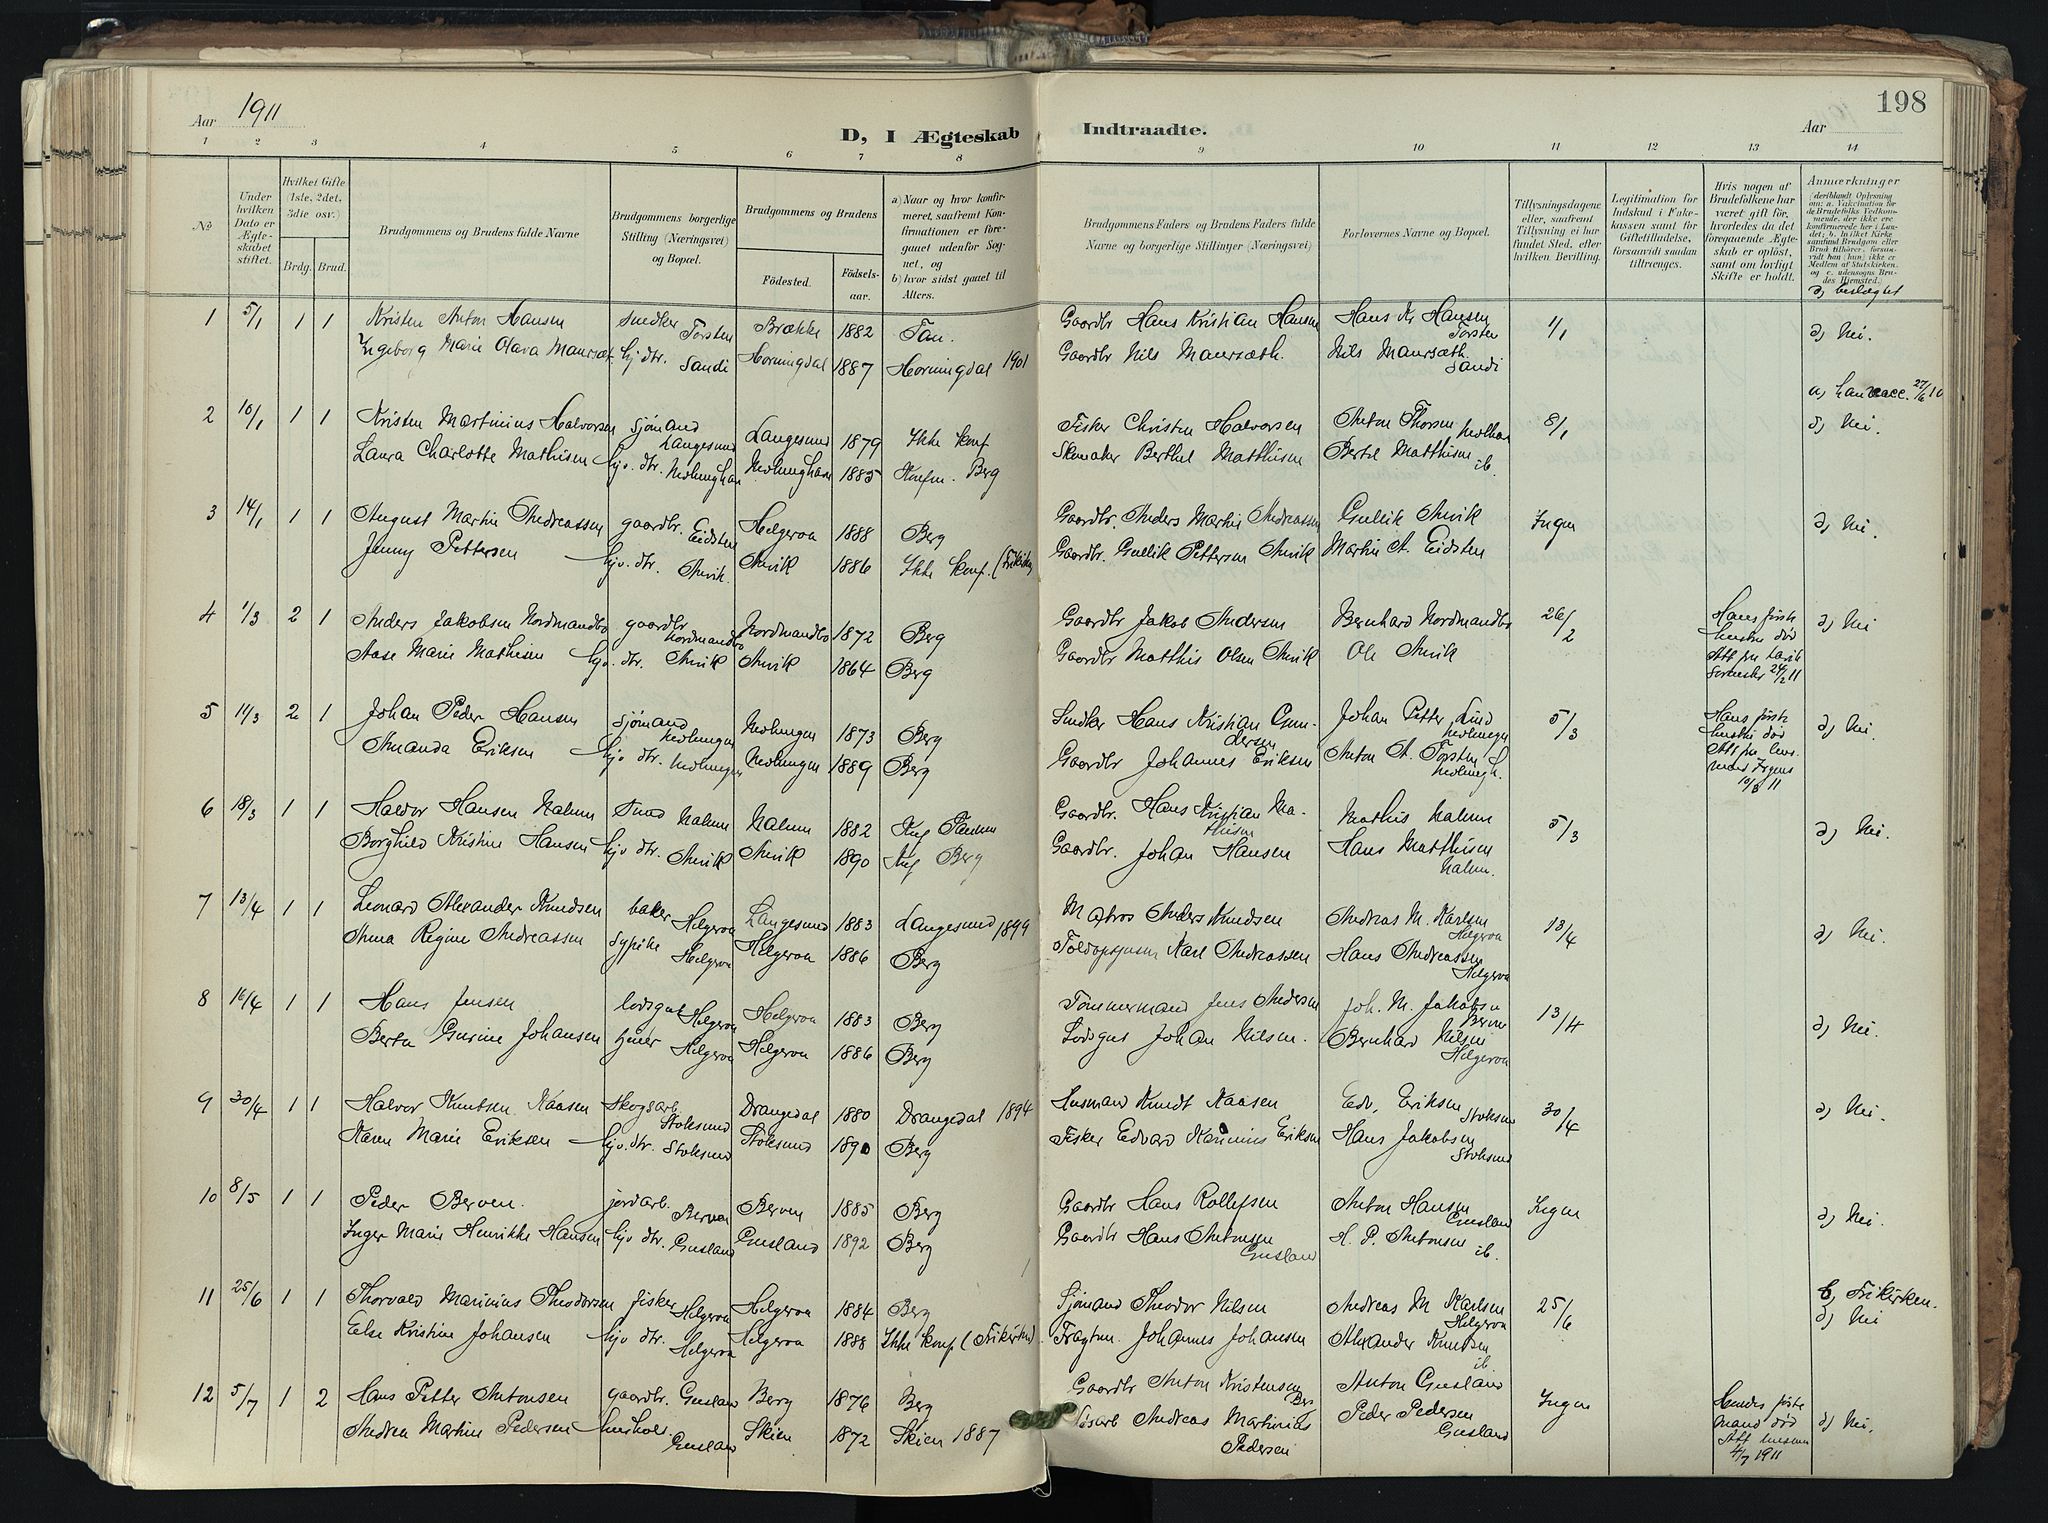 198
Aar 1911
D, I Ægteskab Indtraadte.
Aar
1 2 3 4 5 6 7 8 9 10 11 12 13 14
№
Under hvilken Dato er Ægteskabet stiftet.
Hvilket Gifte (1ste, 2det, 3die osv.)
Brdg. Brud.
Brudgommens og Brudens fulde Navne
Brudgommens borgerlige Stilling (Næringsvei) og Bopæl.
Brudgommens og Brudens
Fødested. Fødselsaar.
a) Naar og hvor konfirmeret, saafremt Konfirmationen er foregaaet udenfor Sognet, og b) hvor sidst gaaet til Alters.
Brudgommens Faders og Brudens Faders fulde Navne og borgerlige Stillinger (Næringsvei)
Forlovernes Navne og Bopæl.
Tillysningsdagene eller, saafremt Tillysning ei har fundet Sted, efter hvilken Bevilling.
Legitimation for Indskud i Enkekassen samt for Giftetilladelse, forsaavidt saadan tiltrænges.
Hvis nogen af Brudefolkene har været gift før, hvorledes da det foregaaende Ægteskab er opløst, samt om lovligt Skifte er holdt.
Anmærkninger
d, beslægtet
1 5/1 1 1 Kristen Anton Hansen Snedker Torsten Brække 1882 Tan. Gaardbr Hans Kristian Hansen Hans Kr Hansen Torsten 1/1 d, Nei.
Ingeborg Marie Olava Maursæt hj. dtr. Sandi Horningdal 1887 Horningdal 1901 Gaardbr Nils Maursæth. Nils Maursæth. Sandi
2 10/1 1 1 Kristen Martinius Halvorsen sjømand Langesund Langesund 1879 Ikke konf Fisker Christen Halvorsen Anton Thorsen 8/1 d, Nei.
Laura Charlotte Mathisen hjv. dtr. 1885 Konfm. Berg Skomaker Berthel Matthisen Bertel Matthisen ib.
3 14/1 1 1 August Martin Andreassen gaardbr. Eidsten Helgeroa 1888 Berg Gaardbr. Anders Martin Andreassen Gullik Anvik Ingen d, Nei.
Jenny Pettersen hjv. dtr. Anvik. Anvik 1886 Ikke konf. Gaardbr. Gullik Pettersen Anvik Martin A. Eidsten
4 1/3 2 1 Anders Jakobsen Nordmandbo gaardbr Nordmandbo Nordmandbo 1872 Berg Gaardbr Jakob Andersen Bernhard Nordmandbo 26/2 Hans første hustru død d, Nei
Aase Marie Mathisen hjv. dtr. Anvik Anvik 1864 Berg Gaardbr Matthis Olsen Anvik Ole Anvik Att fra 24/2 11
5 11/3 2 1 Johan Peder Hansen Sjømand Nevlungen Nevlungen 1873 Berg Snedker Hans Kristian Gundersen Johan Petter Lund Nevlungen 5/3 Hans første hustru død d, Nei.
Amanda Eriksen hjv dtr. Nevlungen Nevlungen 1889 Berg Gaardbr Johannes Eriksen Anton A. Torsten Nevlungh. Att fra 10/3 11
6 18/3 1 1 Haldor Hansen Nalum Smed Nalum Nalum 1882 Gaardbr. Hans Kristian Mathisen Mathis Nalum 5/3 d, Nei.
Borghild Kristine Hansen hjv dtr. Anvik Anvik 1890 Berg Gaardbr. Johan Hansen Hans Matthisen Nalum.
7 13/4 1 1 Leonard Alexander Knudsen baker Helgeroa Langesund 1883 Langesund 1899 Matros Anders Knudsen Andreas M. Karlsen Helgeroa 13/4 d, Nei.
Anna Regine Andreassen sypike Helgeroa Helgeroa 1886 Berg Karl Andreassen Hans Andreassen Helgeroa
8 16/4 1 1 Hans Jensen lodsgut Helgeroa Helgeroa 1883 Berg Tømmermand Jens Andersen Joh. M. Jakobsen Berven 13/4 d, Nei.
Berta Gurine Johansen Helgeroa Helgeroa 1886 Berg Lodsgut Johan Nilsen. Bernhard Nilsen Helgeroa
9 30/4 1 1 Halvor Knutsen Naasen Skogsarb. Stoksund Drangedal 1880 Drangedal 1894 Husmand Knudt Naasen Edv. Eriksen Stoksund 30/4 d, Nei.
Karen Marie Eriksen hjv. dtr. Stoksund Stoksund 1890 Berg Fisker Edvard Eriksen Hans Jakobsen Stoksund
10 8/5 1 1 Peder Berven. jordarb. Berven Berven 1885 Berg Gaardbr Hans Rollefsen Anton Hansen Gusland Ingen d, Nei.
Inger Marie Henrikke Hansen hjv dtr. Gusland Gusland 1892 Berg Gaardbr Hans Antonsen Gusland H. P. Antonsen ib.
11 25/6 1 1 Thorvald Marinius Theodorsen fisker Helgeroa Helgeroa 1884 Berg Sjømand Theodor Nilsen Andreas M Karlsen Helgeroa 25/6 b, Frikirken. d, Nei
Else Kristine Johansen hjv dtr. Helgeroa Helgeroa 1888 Ikke konf Johannes Johansen Alexander Knudsen ib.
12 5/7 1 2 Hans Petter Antonsen gaardbr. Gusland Berg 1876 Berg Gaardbr Anton Kristensen Anton Gusland Ingen Hendes første mand død d, Nei.
Andrea Martine Pedersen hushold. Gusland Skien 1872 Skien 1887 Andreas Martinius Pedersen Peder Pedersen Gusland 4/7 1911